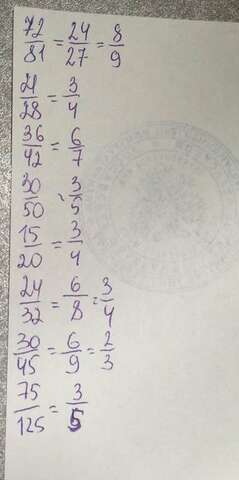 72/81 = 24/27 = 8/9
21/28 = 3/4
36/42 = 6/7
30/50 = 3/5
15/20 = 3/4
24/32 = 6/8 = 3/4
30/45 = 6/9 = 2/3
75/125 = 3/5